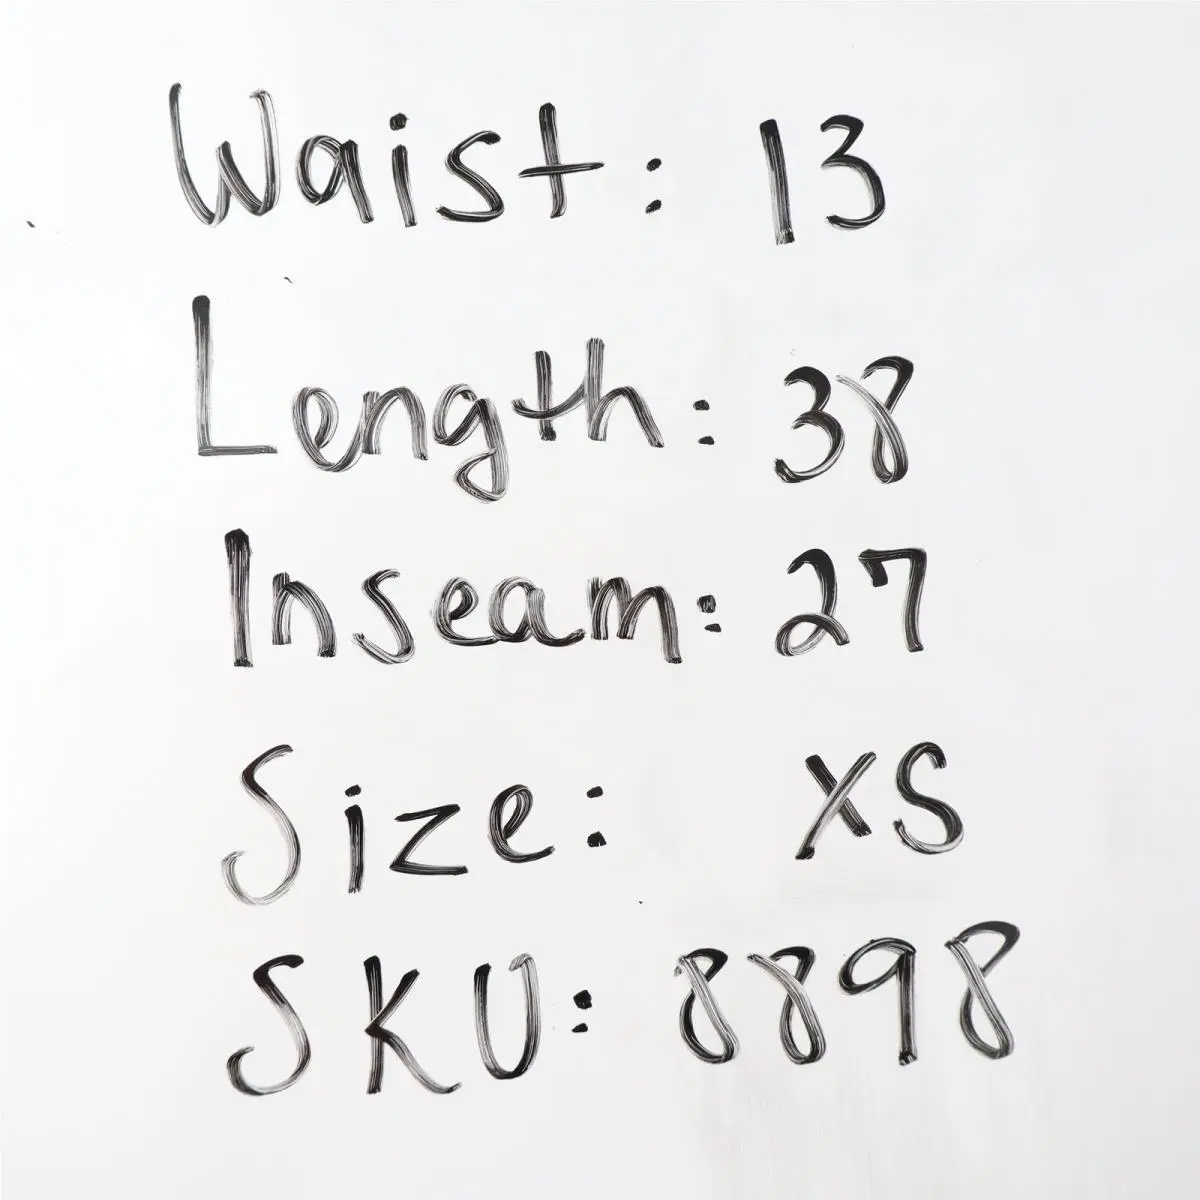 Waist: 13
Length: 38
Inseam: 27
Size: XS
SKU: 8898